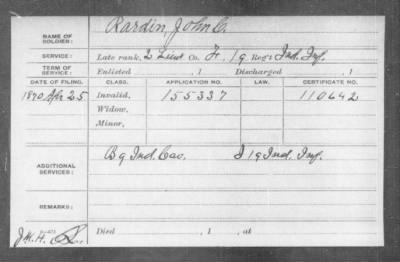 NAME OF SOLDIER: Rardin, John C.
SERVICE: Late rank, 2 Lieut Co. F, 19 Reg't Ind. Inf.
TERM OF SERVICE: Enlisted , 1 Discharged , 1
DATE OF FILING. CLASS. APPLICATION NO. LAW. CERTIFICATE NO.
1870 Apr 25 Invalid, 155337 110642
Widow,
Minor,
ADDITIONAL SERVICES: B 9 Ind. Cav. I 19 Ind. Inf.
REMARKS:
J.M.H. Died , 1 , at